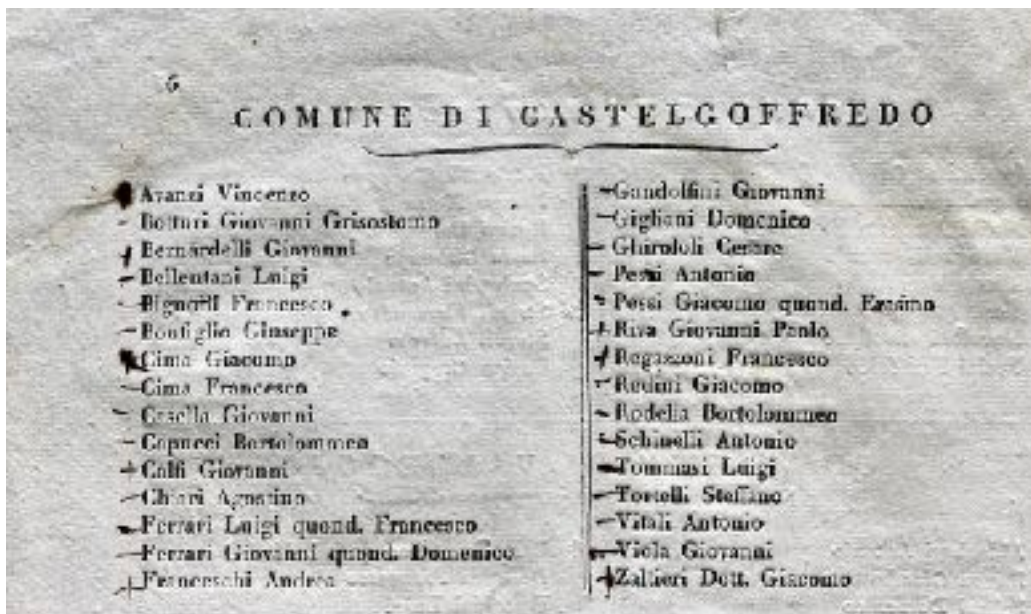 6
COMUNE DI CASTELGOFFREDO
Avanzi Vincenzo
Botturi Giovanni Grisostomo
Bernardelli Giovanni
Bellentani Luigi
Bignotti Francesco
Bonfiglio Giuseppe
Cima Giacomo
Cima Francesco
Casella Giovanni
Capucci Bortolommeo
Calfi Giovanni
Chiari Agostino
Ferrari Luigi quond. Francesco
Ferrari Giovanni quond. Domenico
Franceschi Andrea
Gandolfini Giovanni
Gigliani Domenico
Cesare
Pessi Antonio
Pessi Giacomo quond. Erasmo
Riva Giovanni Paolo
Regazzoni Francesco
Redini Giacomo
Rodella Bortolommeo
Schinelli Antonio
Tommasi Luigi
Tortelli Steffano
Vitali Antonio
Viola Giovanni
Zaltieri Dott. Giacomo